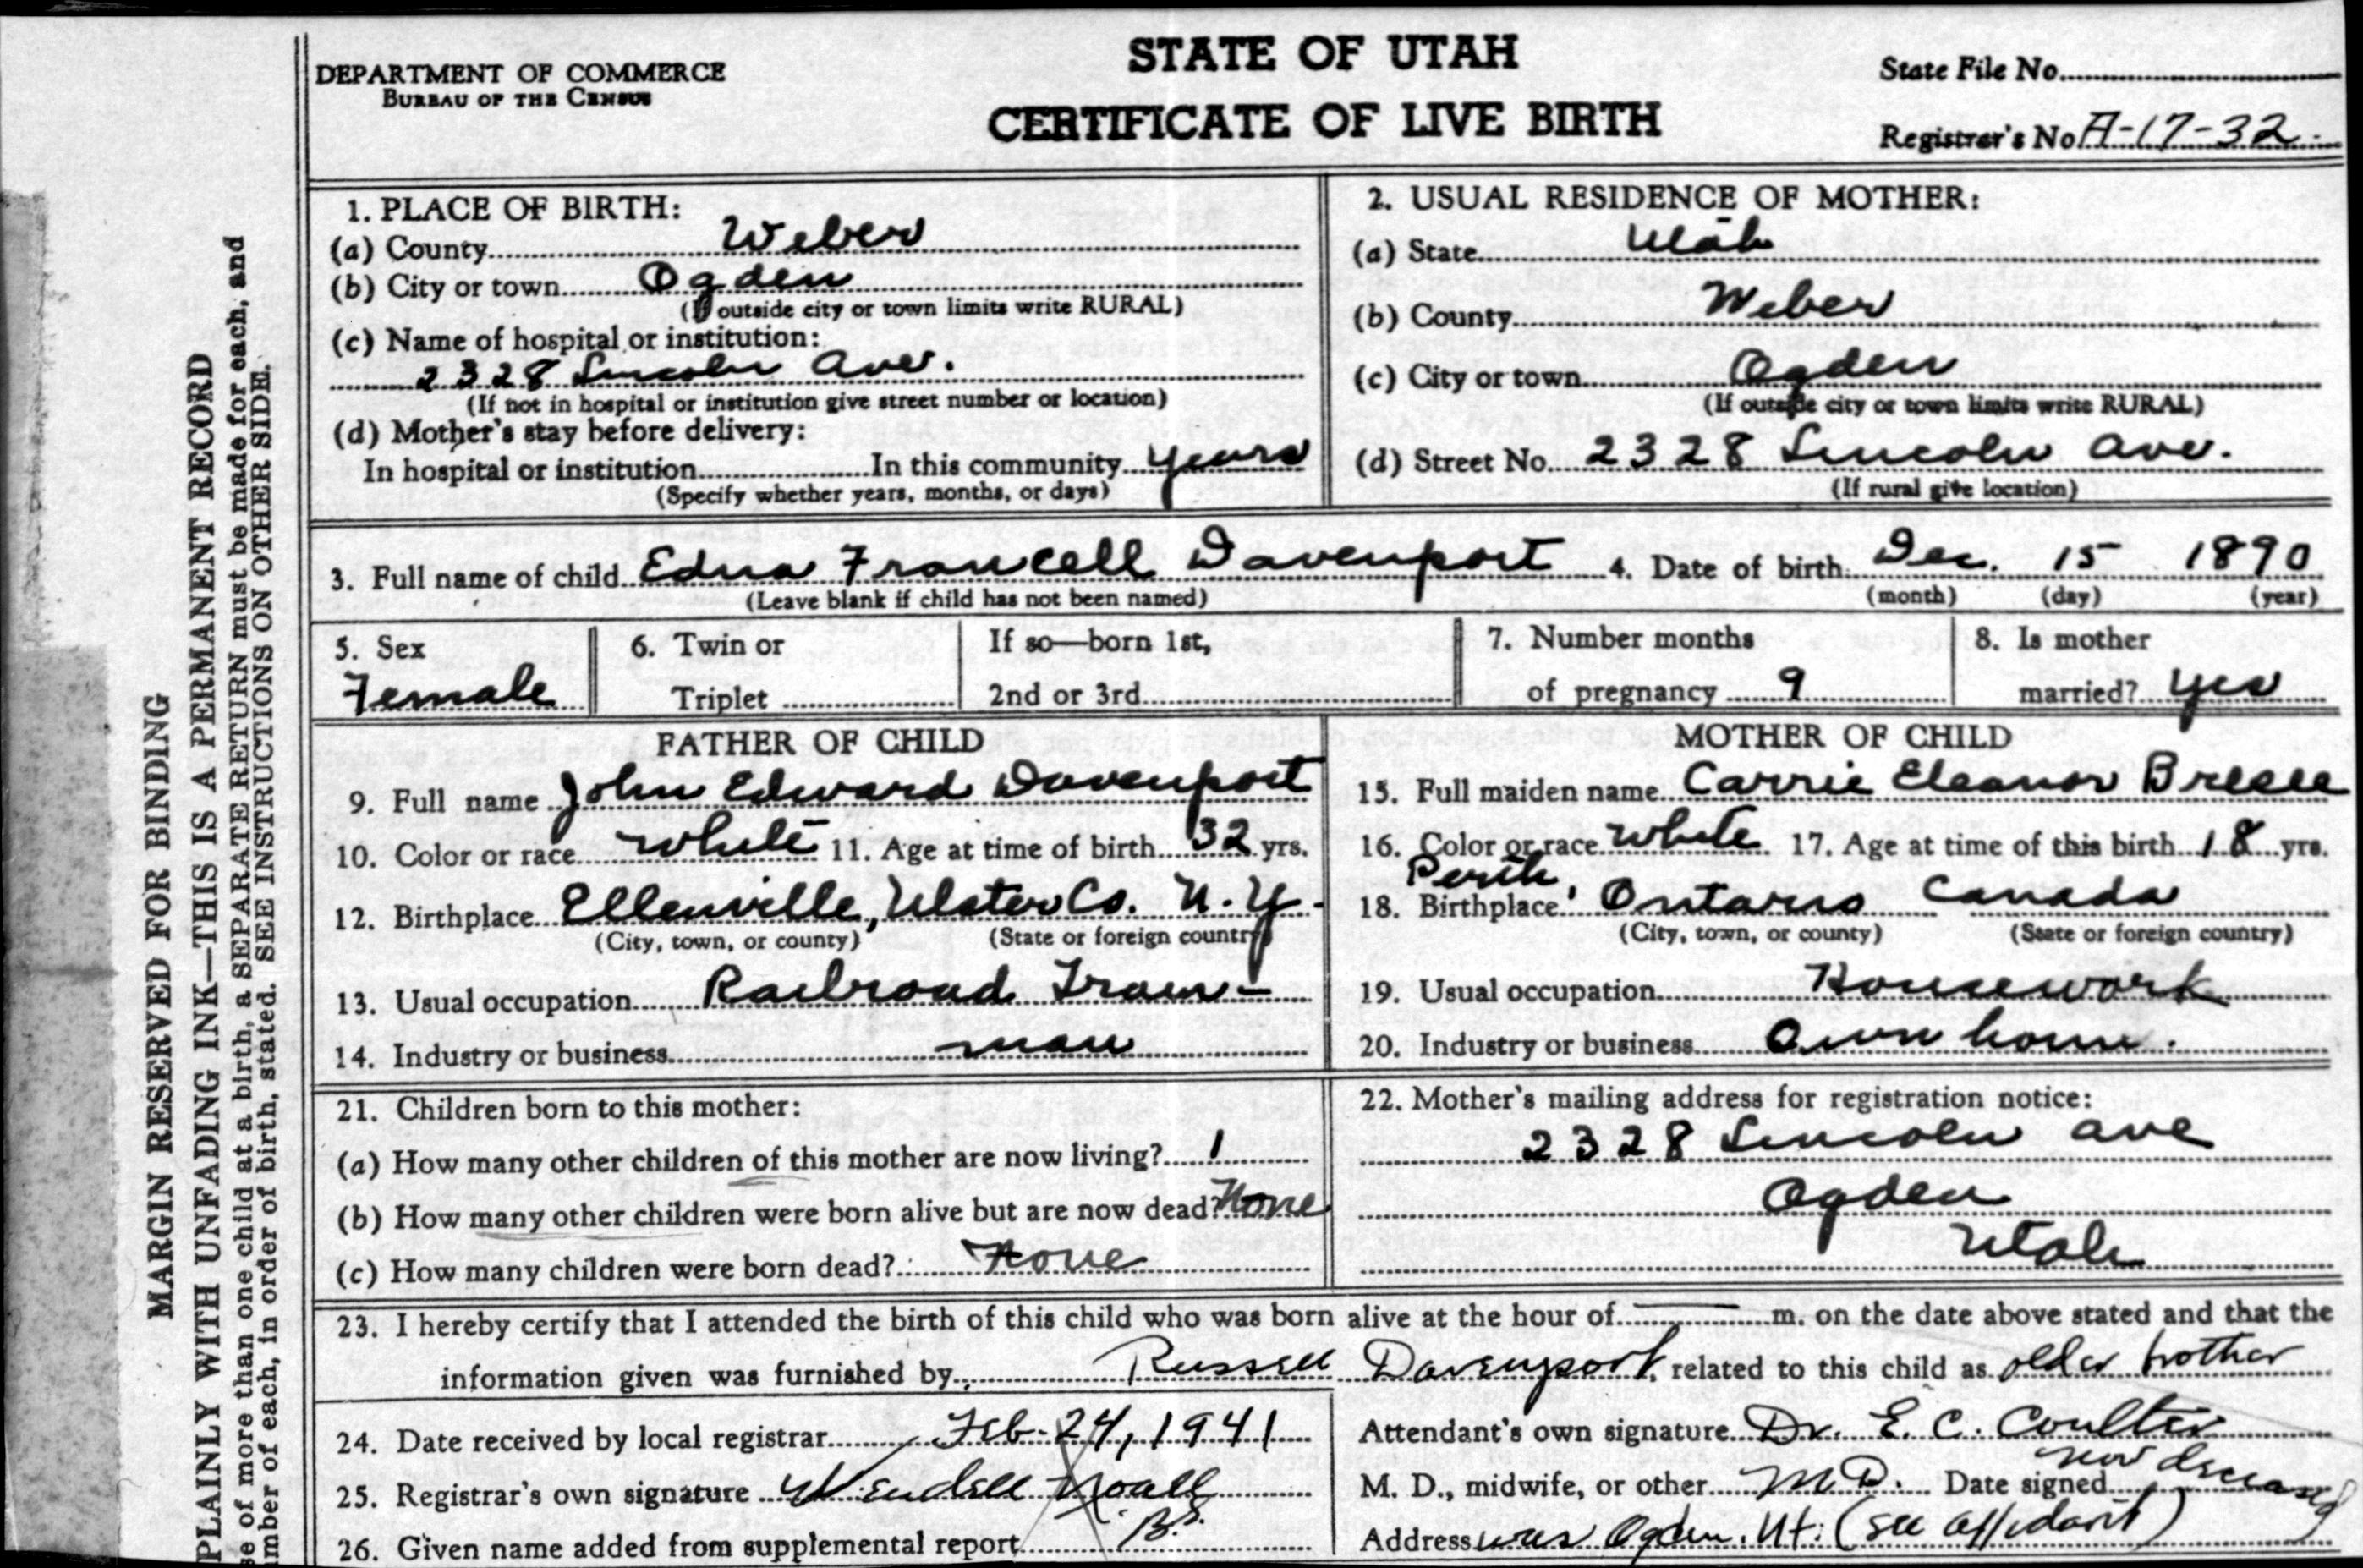 DEPARTMENT OF COMMERCE
BUREAU OF THE CENSUS
STATE OF UTAH
CERTIFICATE OF LIVE BIRTH
State File No.
Registrar's No A-17-32
MARGIN RESERVED FOR BINDING
PLAINLY WITH UNFADING INK—THIS IS A PERMANENT RECORD
se of more than one child at a birth, a SEPARATE RETURN must be made for each, and
mber of each, in order of birth, stated. SEE INSTRUCTIONS ON OTHER SIDE.
1. PLACE OF BIRTH:
(a) County Weber
(b) City or town Ogden
(If outside city or town limits write RURAL)
(c) Name of hospital or institution:
2328 Lincoln Ave.
(If not in hospital or institution give street number or location)
(d) Mother's stay before delivery:
In hospital or institution In this community years
(Specify whether years, months, or days)
2. USUAL RESIDENCE OF MOTHER:
(a) State Utah
(b) County Weber
(c) City or town Ogden
(If outside city or town limits write RURAL)
(d) Street No. 2328 Lincoln Ave.
(If rural give location)
3. Full name of child Edna Francell Davenport 4. Date of birth Dec. 15 1890
(Leave blank if child has not been named) (month) (day) (year)
5. Sex
Female
6. Twin or
Triplet
If so—born 1st,
2nd or 3rd
7. Number months
of pregnancy 9
8. Is mother
married? yes
FATHER OF CHILD
9. Full name John Edward Davenport
10. Color or race white 11. Age at time of birth 32 yrs.
12. Birthplace Ellenville, Ulster Co. N.Y.
(City, town, or county) (State or foreign country)
13. Usual occupation Railroad Train-
14. Industry or business man
MOTHER OF CHILD
15. Full maiden name Carrie Eleanor
16. Color or race White 17. Age at time of this birth 18 yrs.
Perth,
18. Birthplace Ontario Canada
(City, town, or county) (State or foreign country)
19. Usual occupation Housework
20. Industry or business Own home.
21. Children born to this mother:
(a) How many other children of this mother are now living? 1
(b) How many other children were born alive but are now dead? None
(c) How many children were born dead? None
22. Mother's mailing address for registration notice:
2328 Lincoln Ave
Ogden
Utah
23. I hereby certify that I attended the birth of this child who was born alive at the hour of — m. on the date above stated and that the
information given was furnished by Russell Davenport, related to this child as older brother
24. Date received by local registrar Feb-24, 1941
25. Registrar's own signature Wendell Noall
B.S.
26. Given name added from supplemental report
Attendant's own signature Dr. E. C. Coulter
now deceased
M. D., midwife, or other M.D. Date signed
Address was Ogden, Ut. (see affidavit)